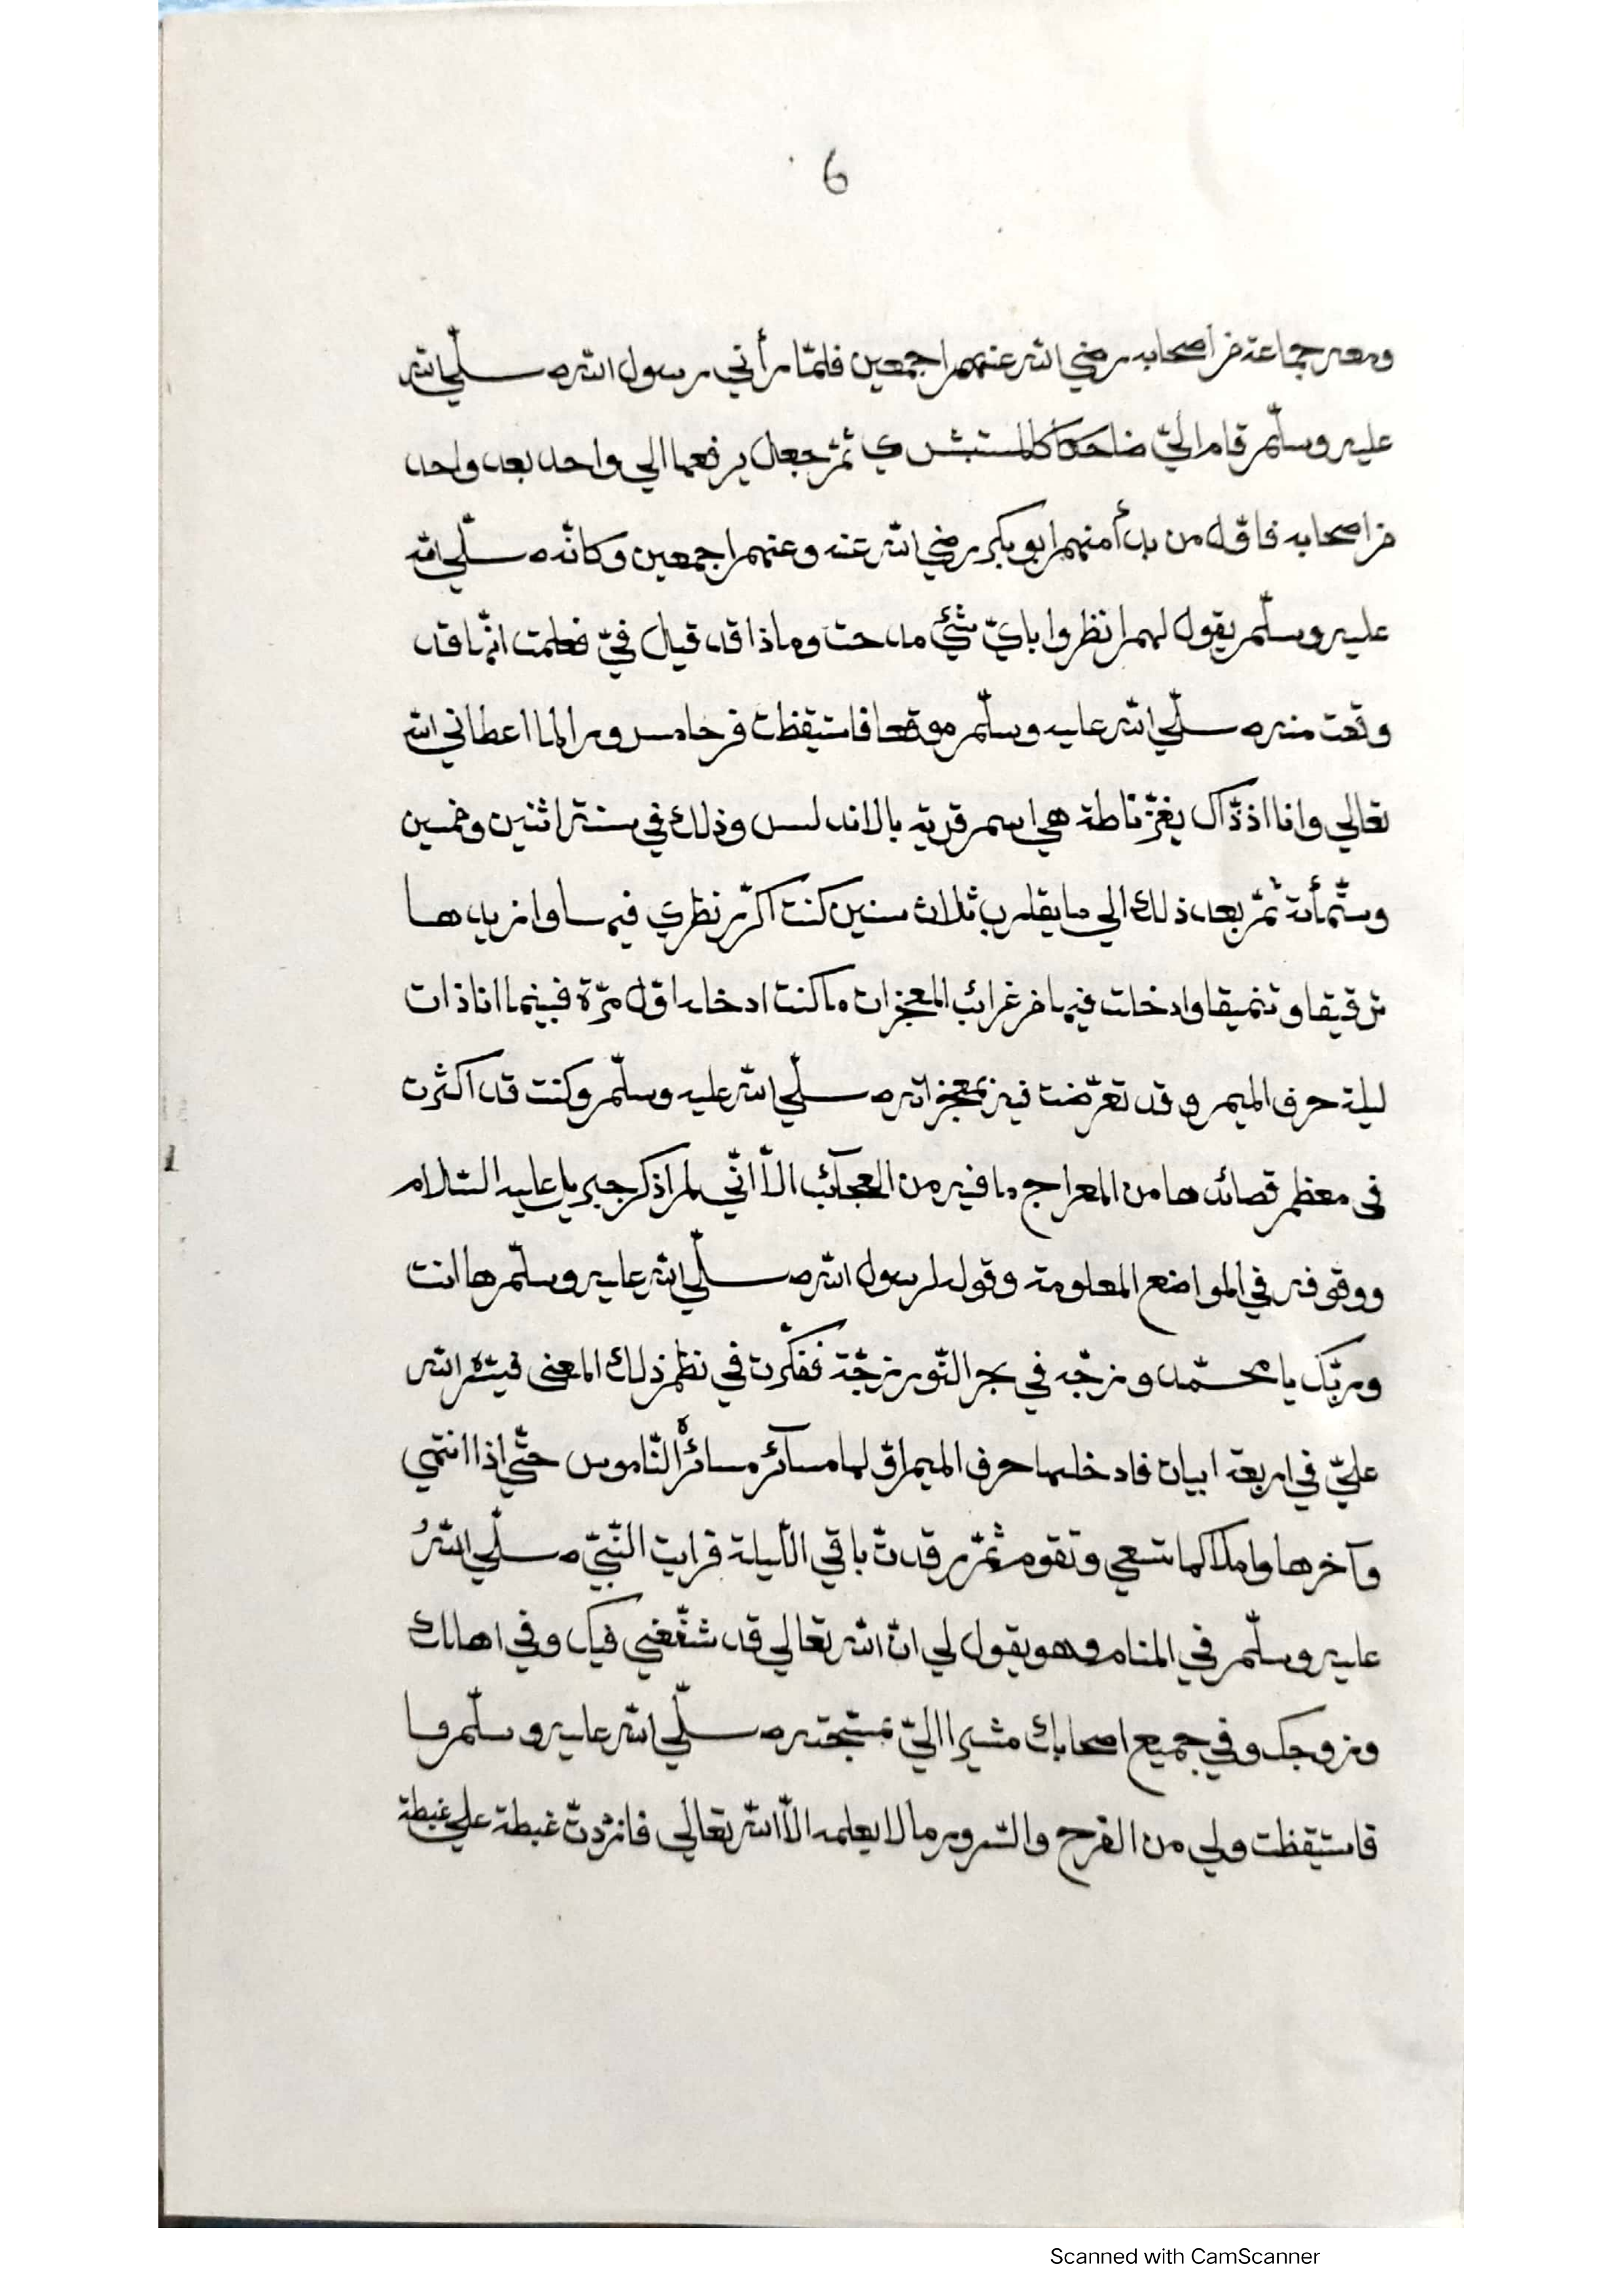 6
ومعه جماعة من اصحابه رضي الله عنهم اجمعين فلمّا رأني رسول الله صلّي الله
عليه وسلّم قام اليّ ضاحكا كالمستبشري ثمّ جعل يرفعها الي واحد بعد واحد
من اصحابه فاوّل من بدأ منهم ابو بكر رضي الله عنه وعنهم اجمعين وكانّه صلّي الله
عليه وسلّم يقول لهم انظروا بايّ شئ مدحت وماذا قد قيل فيّ فعلمت انّها قد
وقعت منه صلّي الله عليه وسلّم موقعا فاستيقظت فرحا مسرورا لما اعطاني الله
تعالي وانا اذ ذّاك بغرناطة هي اسم قرية بالاندلس وذلك في سنة اثنين وخمسين
وستّمأئة ثمّ بعد ذلك الي ما يقارب ثلاث سنين كنت اكرّر نظري فيها وازيدها
ترقيقا وتنميقا وادخلت فيها من غرائب المعجزات ما كنت ادخله اوّل مرّة فبينما انا ذات
ليلة حرف الميم وقد تعرّضت فيه بمعجزاته صلّي الله عليه وسلّم وكنت قد اكثرت
في معظم قصائدها من المعراج ما فيه من العجآئب الاّ انّي لم اذكر جبريل عليه السّلام
ووقوفه في المواضع المعلومة وقوله لرسول الله صلّي الله عليه وسلّم ها انت
وربّك يا محمّد وزجّه في بحر النّور زجّة ففكّرت في نظم ذلك المعنى فيسّره الله
عليّ في اربعة ابيات فادخلها حرف الميم اوّلها مسآئر مسائرُ النّاموس حتّي اذا انتهي
وآخرها واملاكها تسعي وتقوم ثمّ رقدتّ باقي اللّيلة فرايت النّبيّ صلّي اللهُ
عليه وسلّم في المنام وهو يقول لي انّ الله تعالي قد شفّعني فيك وفي اهلك
وزوجك وفي جميع اصحابك مشيرا اليّ بمسبّحته صلّي الله عليه وسلّم فا
فاستيقظت ولي من الفرح والسّرور ما لا يعلمه الاّ الله تعالي فازددتّ غبطة علي غبطة
Scanned with CamScanner